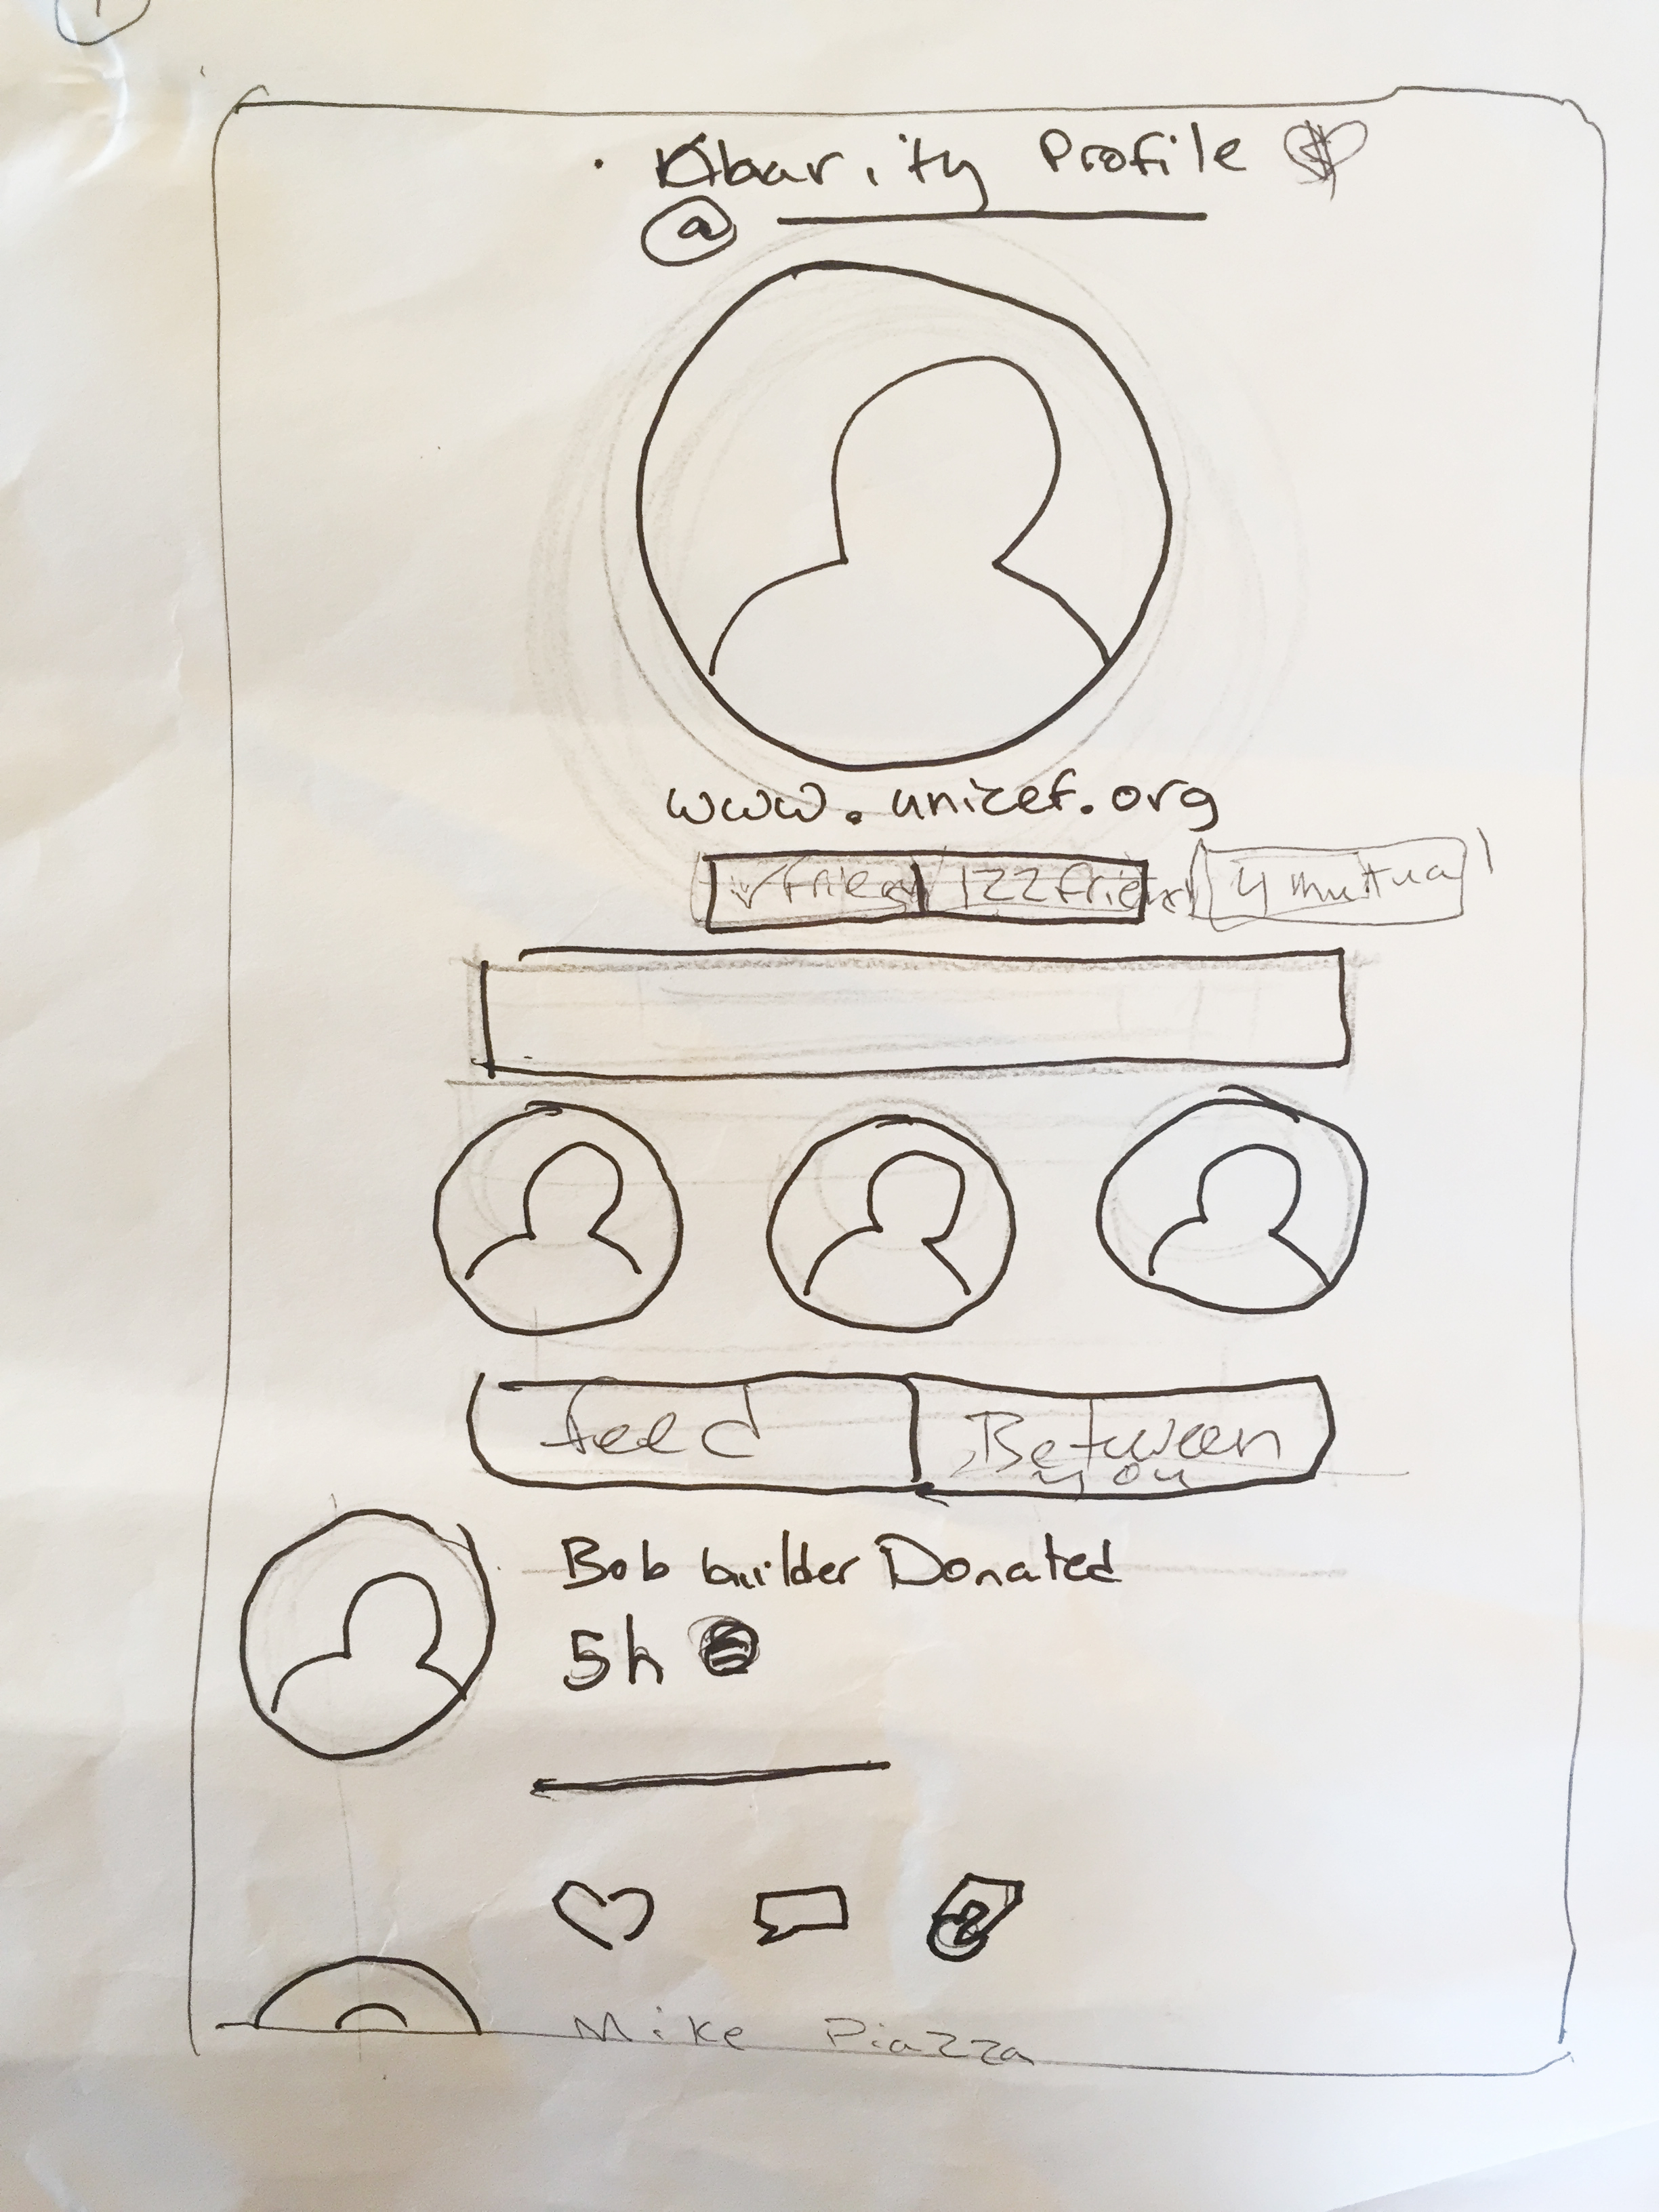 Charity Profile
@
www.unicef.org
✓ friend 122 friend 4 mutual
feed Between
you
Bob builder Donated
5h
Mike Piazza